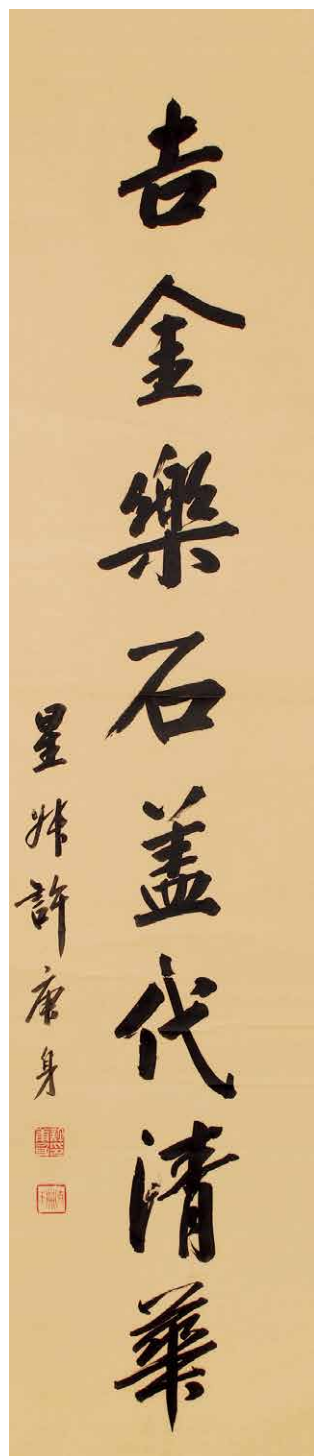 吉金樂石盖代清華
星叔許庚身